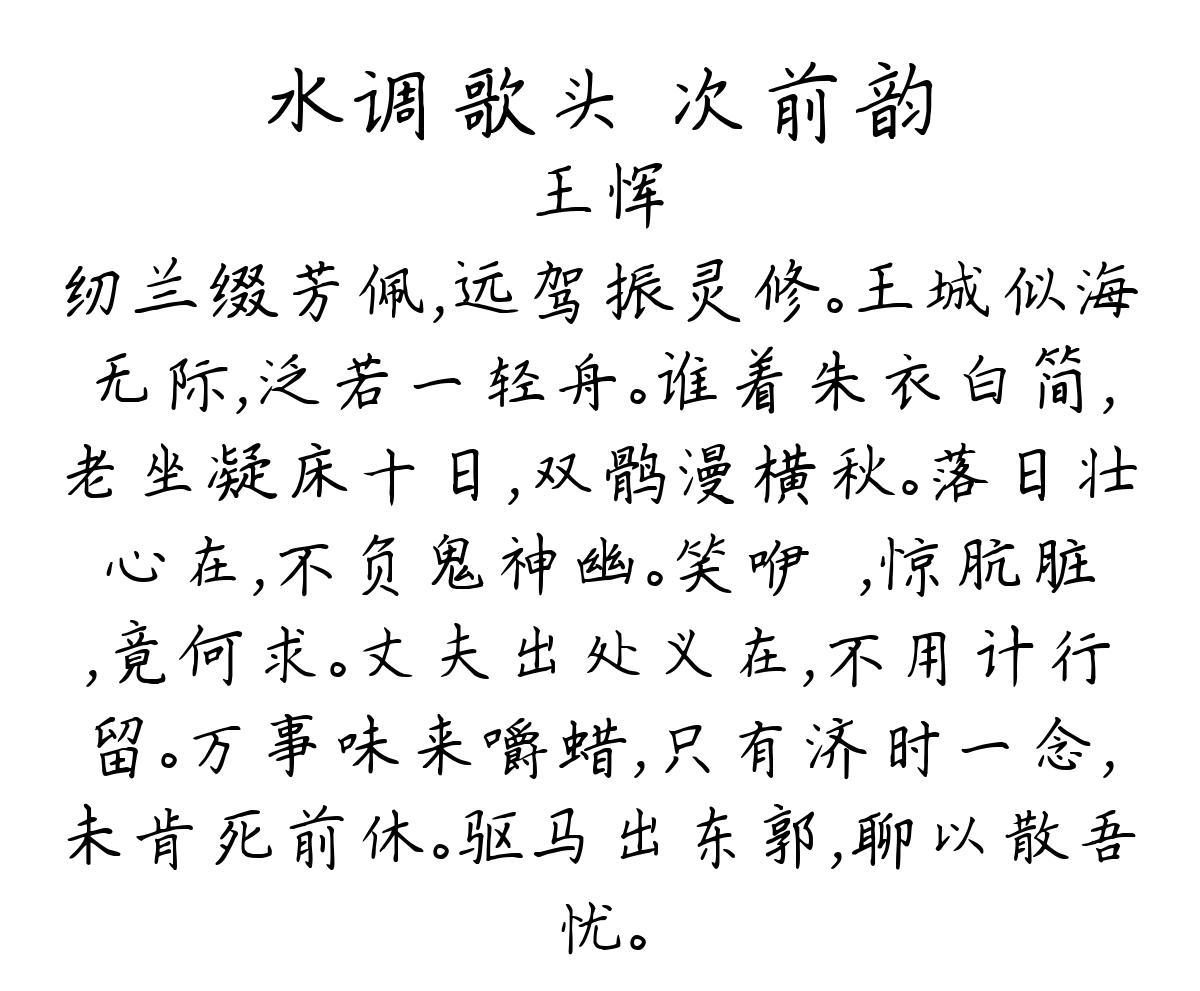 水调歌头 次前韵
王恽
纫兰缀芳佩,远驾振灵修。王城似海
无际,泛若一轻舟。谁着朱衣白简,
老坐凝床十日,双鹘漫横秋。落日壮
心在,不负鬼神幽。笑咿 ,惊肮脏
,竟何求。丈夫出处义在,不用计行
留。万事味来嚼蜡,只有济时一念,
未肯死前休。驱马出东郭,聊以散吾
忧。